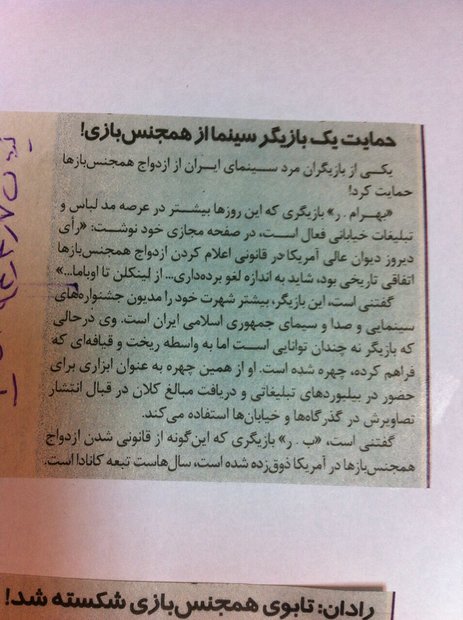 حمایت یک بازیگر سینما از همجنس‌بازی!
یکی از بازیگران مرد سینمای ایران از ازدواج همجنس‌بازها
حمایت کرد!
«بهرام . ر» بازیگری که این روزها بیشتر در عرصه مد لباس و
تبلیغات خیابانی فعال است، در صفحه مجازی خود نوشت: «رأی
دیروز دیوان عالی آمریکا در قانونی اعلام کردن ازدواج همجنس‌بازها
اتفاقی تاریخی بود، شاید به اندازه لغو برده‌داری... از لینکلن تا اوباما...»
گفتنی است، این بازیگر، بیشتر شهرت خود را مدیون جشنواره‌های
سینمایی و صدا و سیمای جمهوری اسلامی ایران است. وی درحالی
که بازیگر نه چندان توانایی است اما به واسطه ریخت و قیافه‌ای که
فراهم کرده، چهره شده است. او از همین چهره به عنوان ابزاری برای
حضور در بیلبوردهای تبلیغاتی و دریافت مبالغ کلان در قبال انتشار
تصاویرش در گذرگاه‌ها و خیابان‌ها استفاده می‌کند.
گفتنی است، «ب . ر» بازیگری که این‌گونه از قانونی شدن ازدواج
همجنس‌بازها در آمریکا ذوق‌زده شده است، سال‌هاست تبعه کانادا است.
رادان: تابوی همجنس‌بازی شکسته شد!